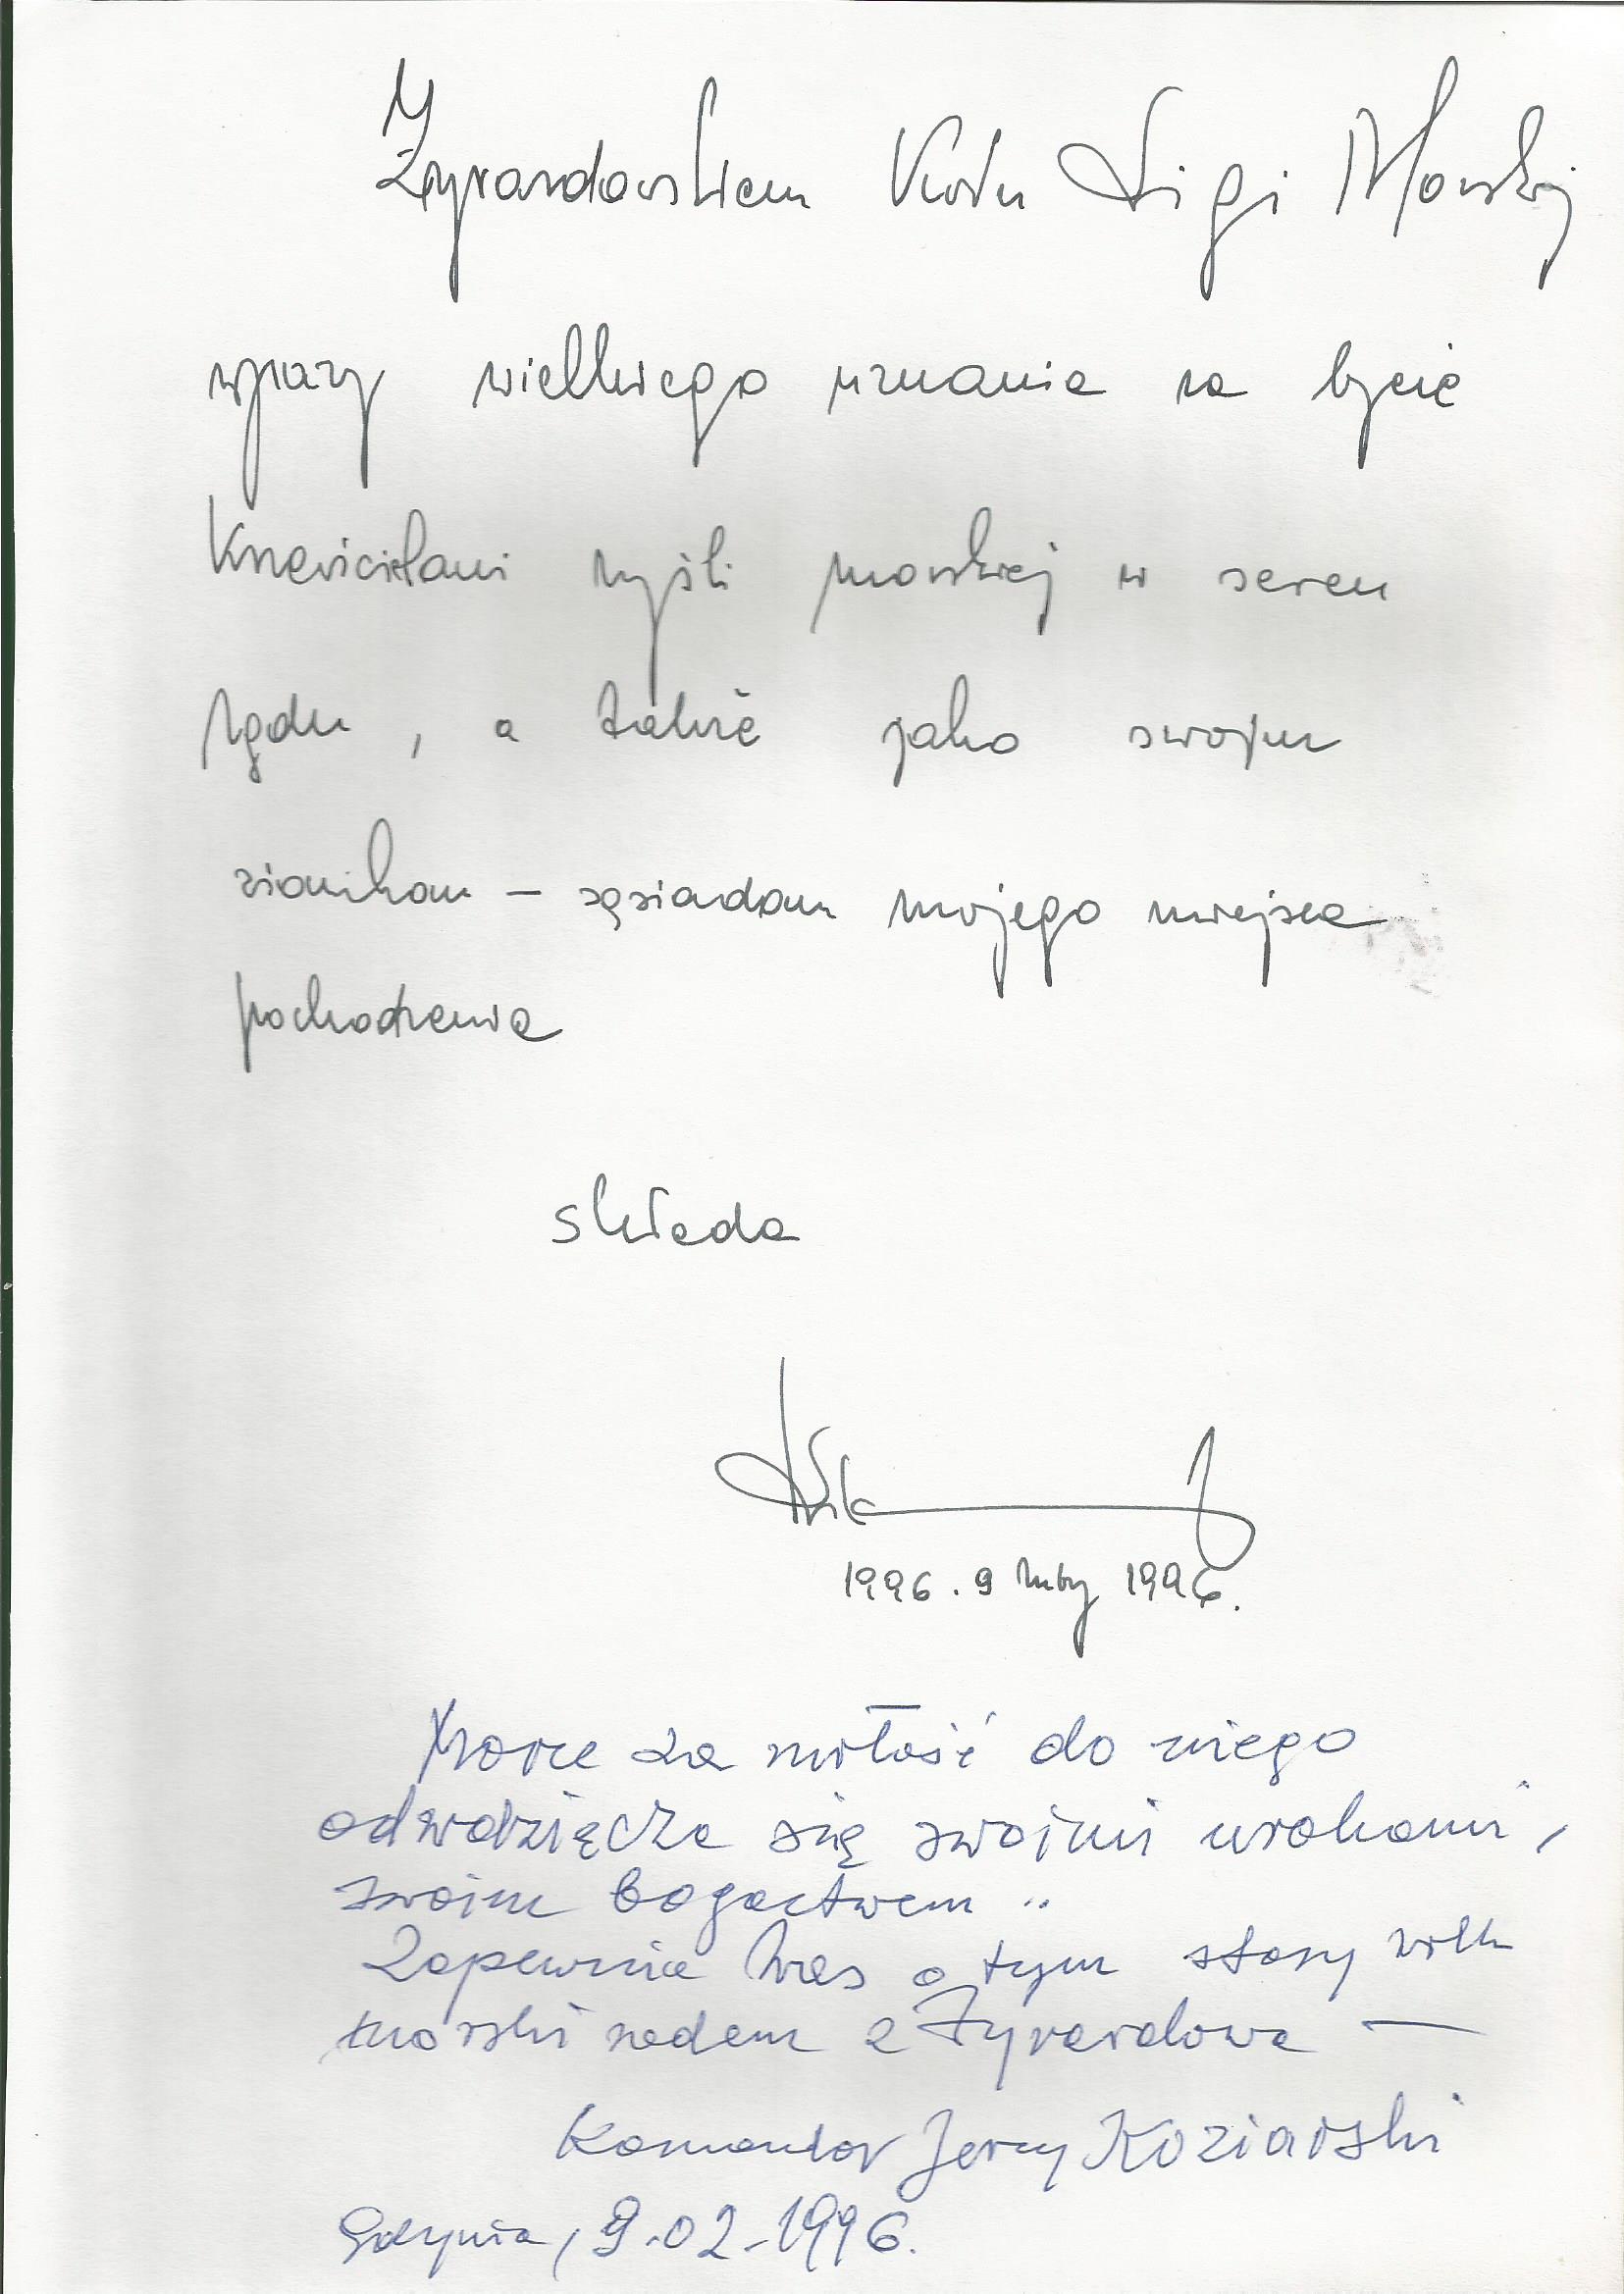 Żyrardowskiem Kołu Ligi Morskiej
wyrazy wielkiego uznania za bycie
Krzewicielami myśli morskiej w sercu
lądu, a także jako swoim
ziomkom – sąsiadom mojego miejsca
pochodzenia
składa
1996. 9 luty 1996.
Morze za miłość do niego
odwdzięcza się swoimi urokami,
swoim bogactwem"
Zapewnia Was o tym stary wilk
morski rodem z Żyrardowa —
Komandor Jerzy Koziarski
Gdynia, 9.02.1996.